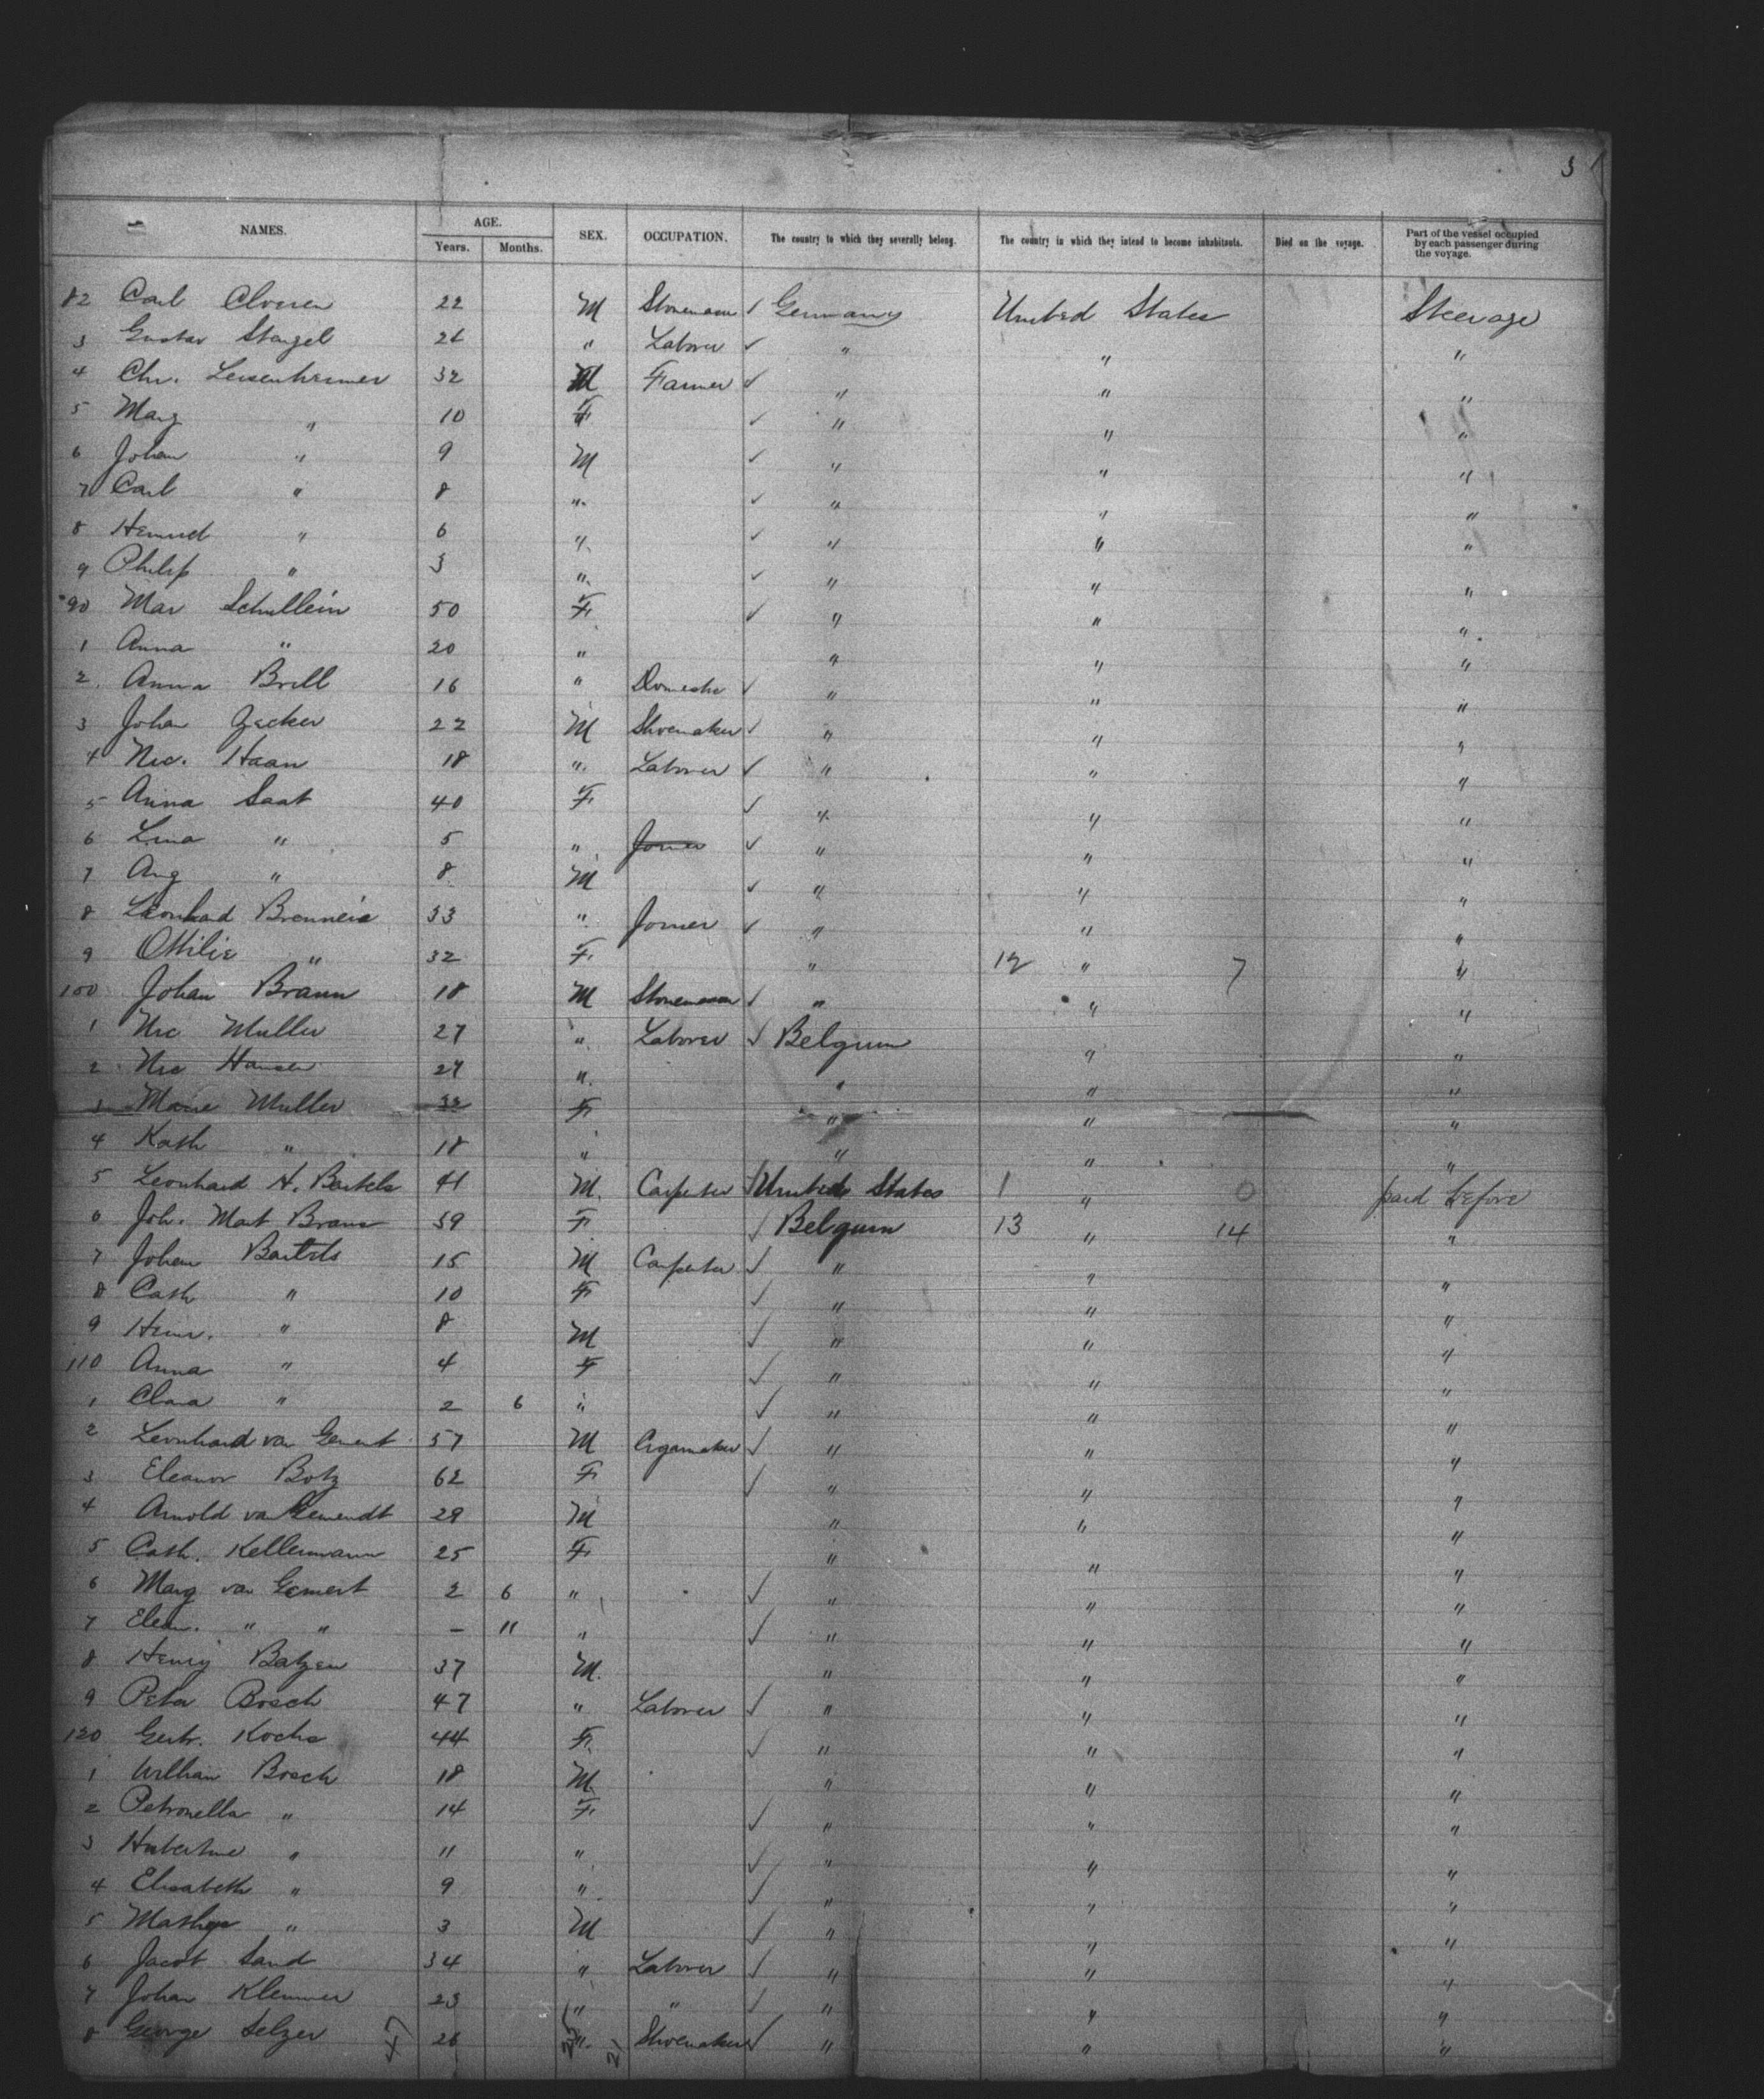 3
NAMES. AGE. SEX. OCCUPATION. The country to which they severally belong. The country in which they intend to become inhabitants. Died on the voyage. Part of the vessel occupied by each passenger during the voyage.
Years. Months.
82 Carl 22 M Stonemason ✓ Germany United States Steerage
3 Gustav Stengel 26 " Laborer ✓ " " "
4 Chr. Leisenheimer 32 M Farmer ✓ " " "
5 Marg " 10 F ✓ " " "
6 Johan " 9 M ✓ " " "
7 Carl " 8 " ✓ " " "
8 Heinrich " 6 " ✓ " " "
9 Philip " 3 " ✓ " " "
90 Mar Schullein 50 F ✓ " " "
1 Anna " 20 " " " "
2 Anna Brill 16 " Domestic ✓ " " "
3 Johan Zecker 22 M Shoemaker ✓ " " "
4 Nic. Haan 18 " Laborer ✓ " " "
5 Anna Saat 40 F ✓ " " "
6 Lina " 5 " Joiner ✓ " " "
7 Aug " 8 M ✓ " " "
8 Leonhard 33 " Joiner ✓ " " "
9 Ottilie " 32 F " 12 " 7 "
100 Johan Braun 18 M Stonemason ✓ " " "
1 Nic Muller 27 " Laborer ✓ Belgium " "
2 Nic Hansen 27 " " " "
3 Marie Muller 32 F " " "
4 Kath " 18 " " " "
5 Leonhard H. Bartels 41 M. Carpeter ✓ United States 1 " 0 paid before
6 Joh. Mart Brans 39 F ✓ Belgium 13 " 14 "
7 Johan Bartels 15 M Carpeter ✓ " " "
8 Cath " 10 F ✓ " " "
9 Heinr. " 8 M ✓ " " "
110 Anna " 4 F ✓ " " "
1 Clara " 2 6 " ✓ " " "
2 Leonhard van Gemert 57 M Cigarmaker ✓ " " "
3 Eleanor Botz 62 F ✓ " " "
4 Arnold van Gemendt 29 M " " "
5 Cath. Kellermann 25 F " " "
6 Marg van Gemert 2 6 " ✓ " " "
7 Elean. " " – 11 " ✓ " " "
8 Henry Batzen 37 M. " " "
9 Peter Bosch 47 " Laborer ✓ " " "
120 Gertr. Kochs 44 F. ✓ " " "
1 William Bosch 18 M " " "
2 Petronella " 14 F ✓ " " "
3 Hubertine " 11 " ✓ " " "
4 Elisabeth " 9 " ✓ " " "
5 Mathys " 3 M ✓ " " "
6 Jacob Sand 34 " Laborer ✓ " " "
7 Johan Klemmer 23 " " ✓ " " "
8 George Selzer 47 26 " 21 Shoemaker ✓ " " "